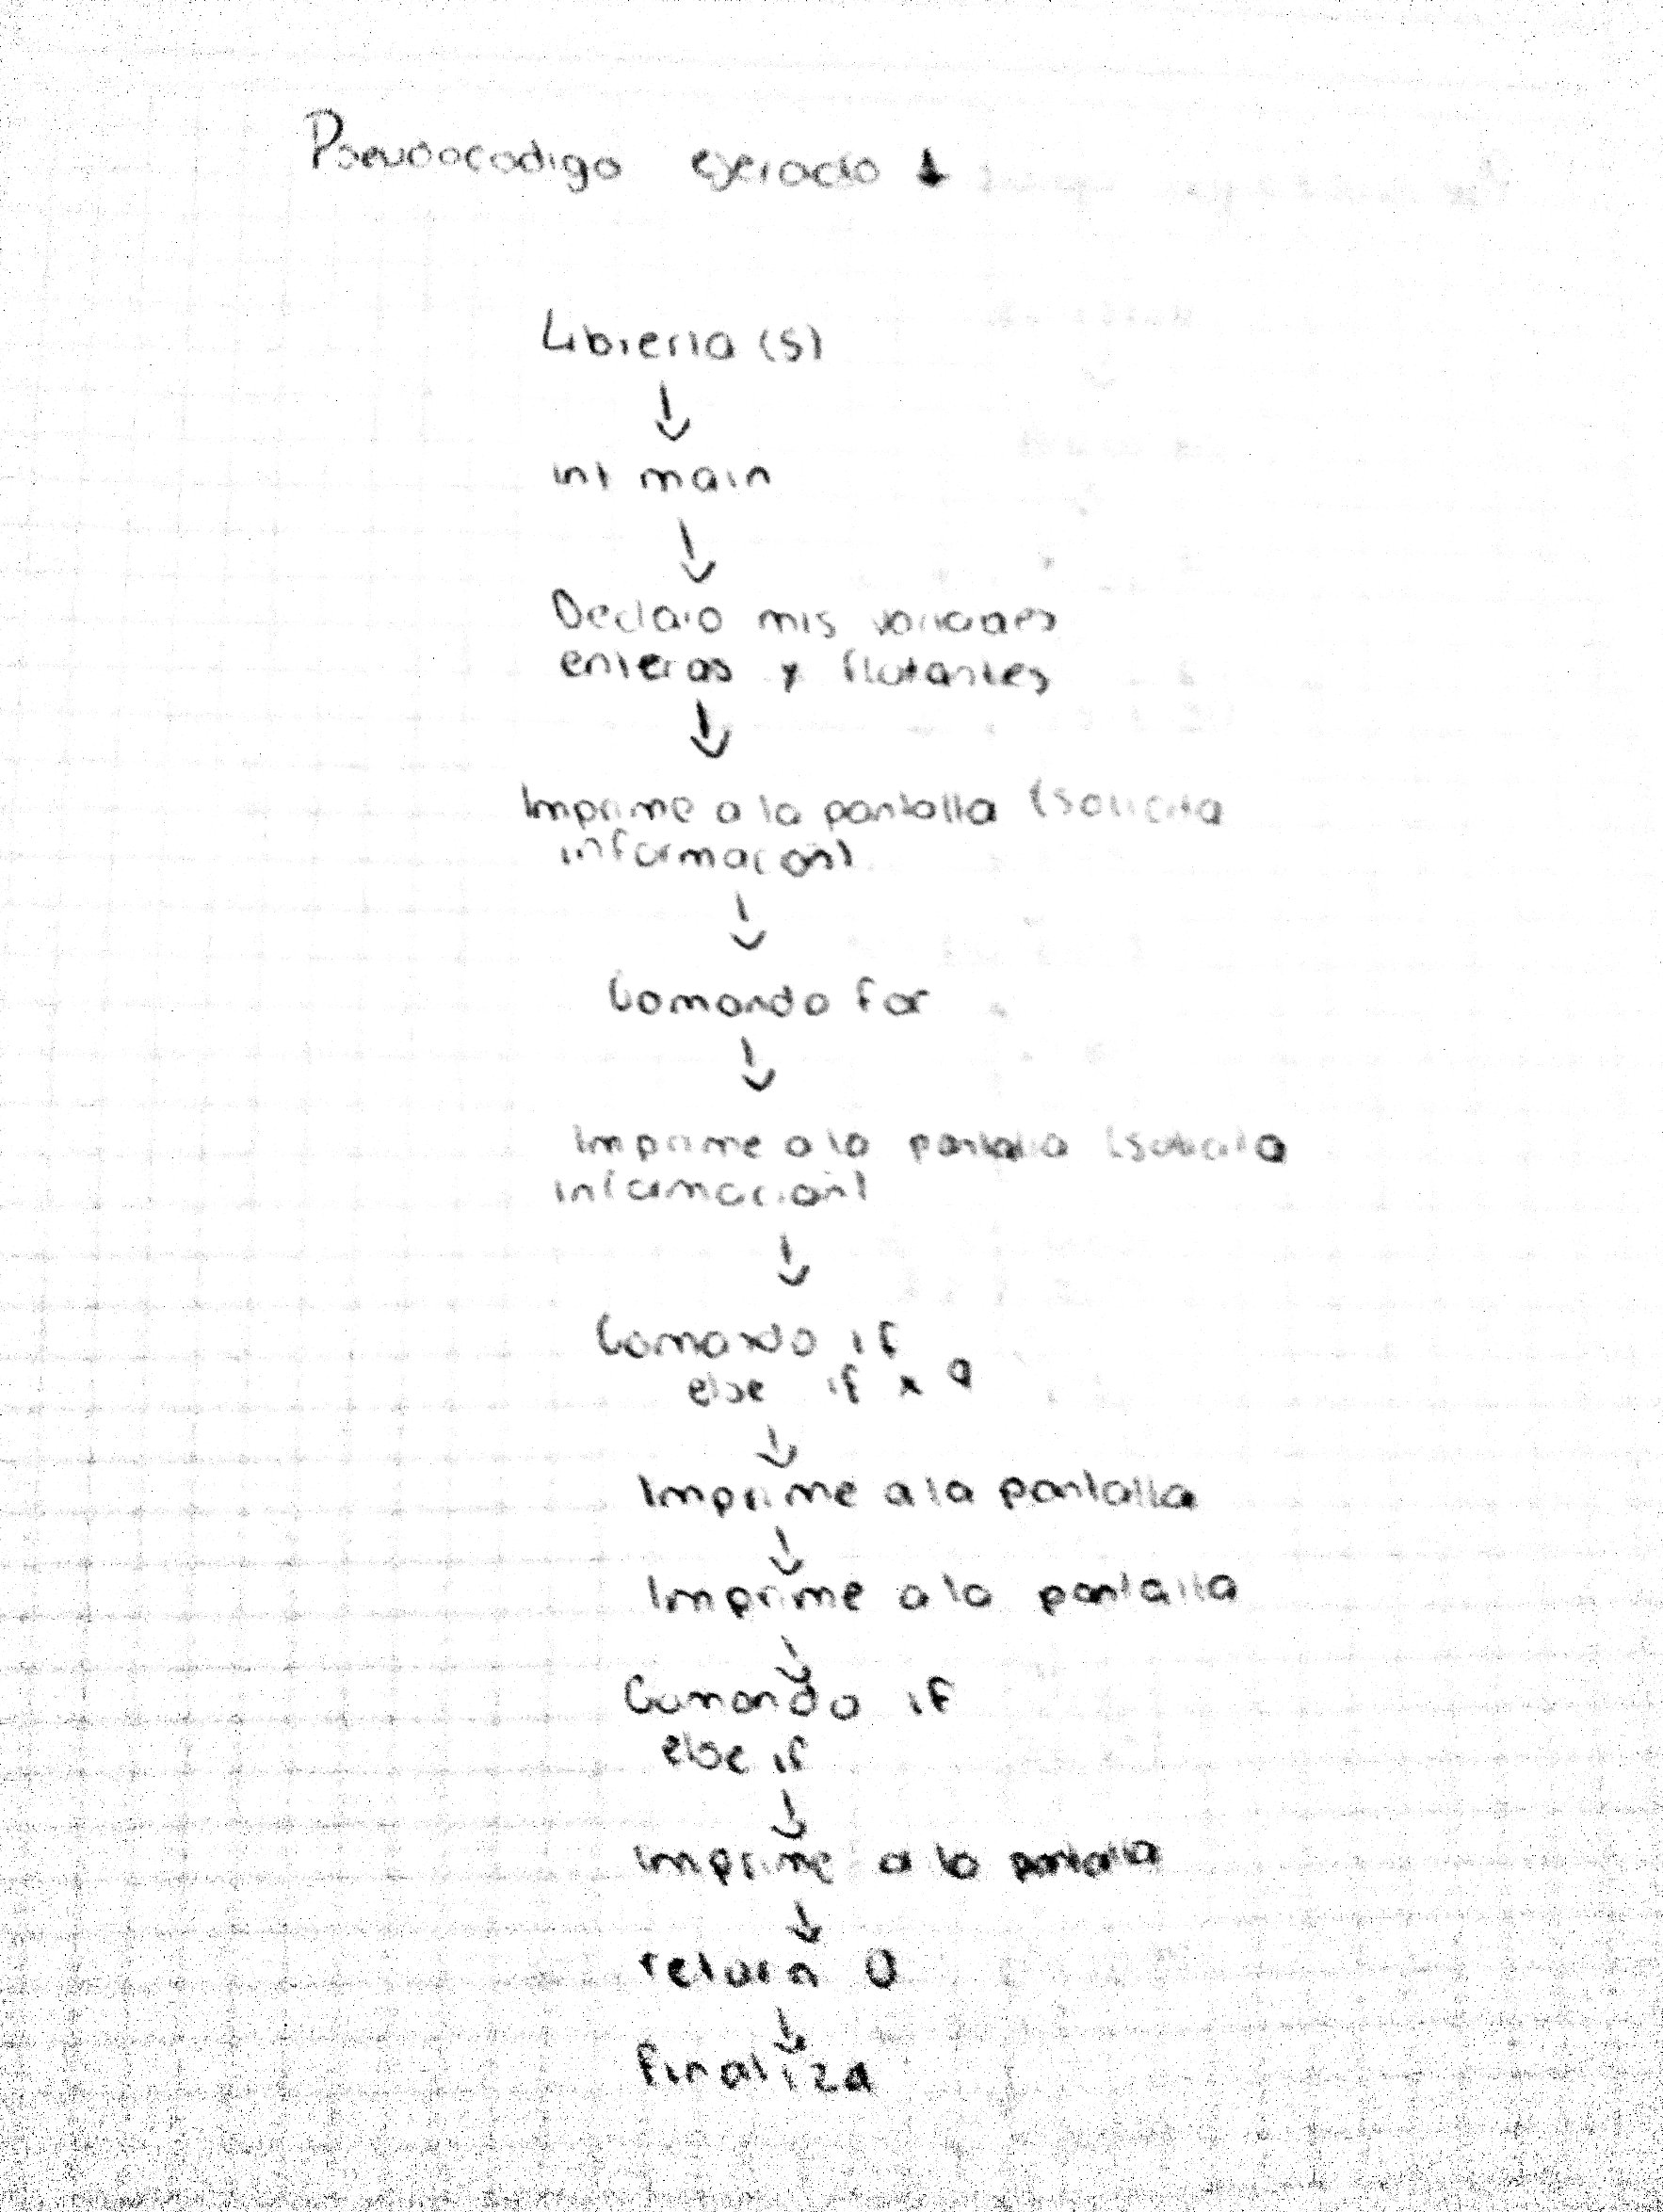 Pseudocodigo ejercicio 1
Libreria (s)
int main
Declaro mis variables
enteras y flotantes
Imprime a la pantalla (solicita
información)
Comando for
Imprime a la pantalla (solicita
información)
Comando if
else if x
Imprime a la pantalla
Imprime a la pantalla
Comando if
else if
Imprime a la pantalla
return 0
finaliza